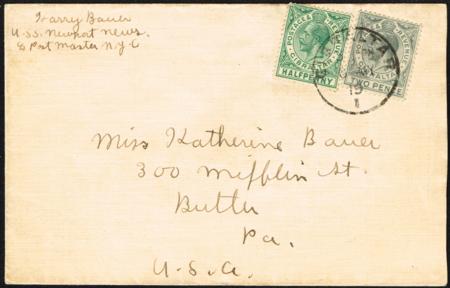 Harry Bauer
U.S.S. Newport News.
℅ Post Master N.Y.C
POSTAGE & REVENUE
GIBRALTAR
HALFPENNY
POSTAGE & REVENUE
GIBRALTAR
TWO PENCE
GIBRALTAR
19
1
Miss Katherine Bauer
300 Mifflin St.
Butler
Pa.
U.S.A.